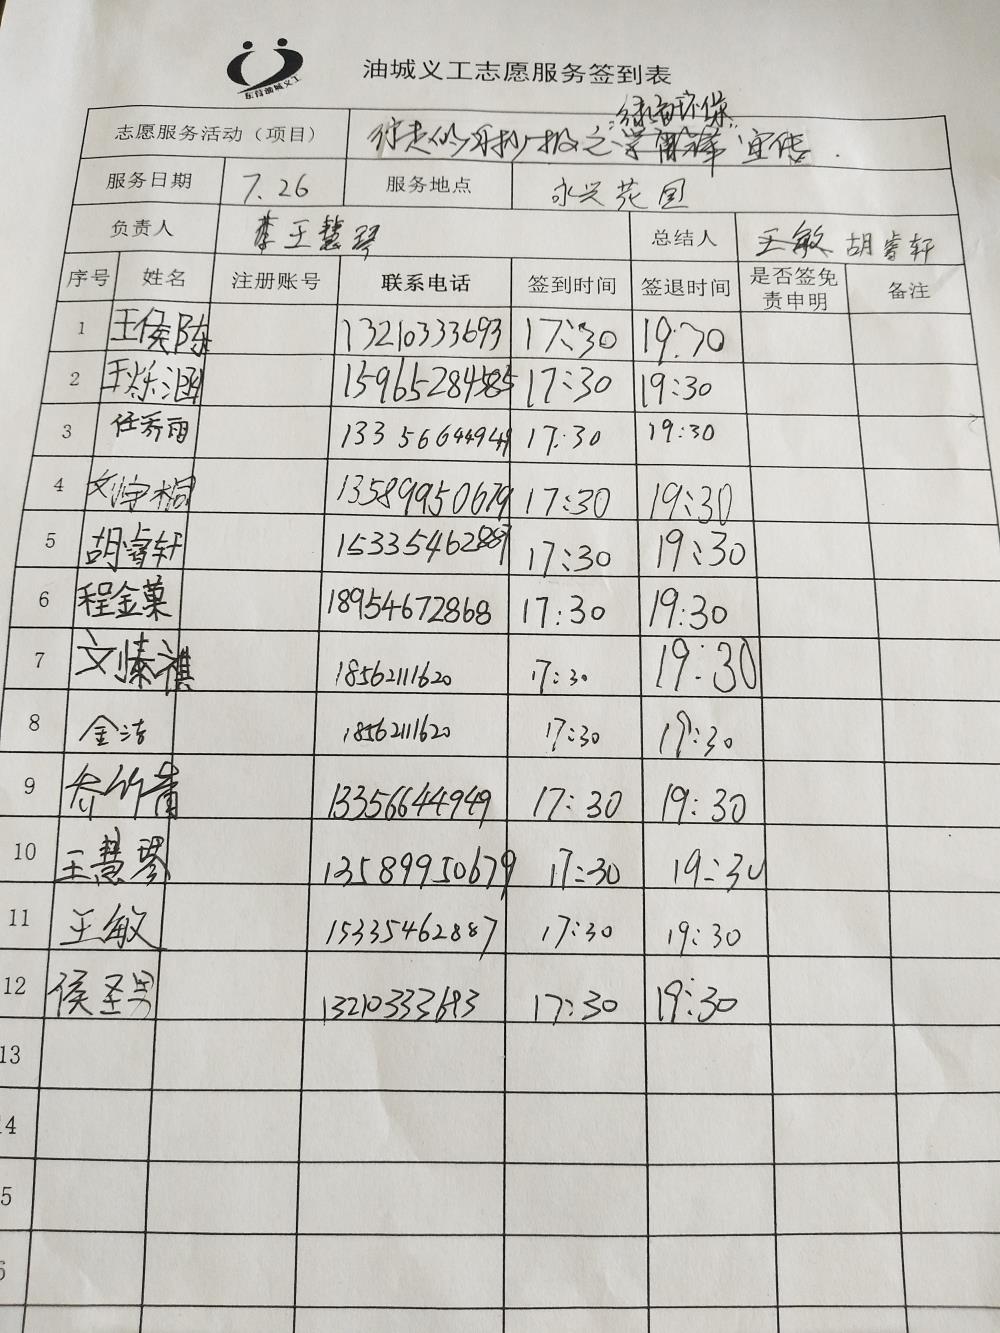 东营油城义工
油城义工志愿服务签到表
绿色环保
志愿服务活动（项目） 行走的手抄报之学雷锋宣传.
服务日期 7.26 服务地点 永兴花园
负责人 李王慧琴 总结人 王敏 胡睿轩
序号 姓名 注册账号 联系电话 签到时间 签退时间 是否签免责申明 备注
1 王侯陈 13210333693 17:30 19:30
2 王烁涵 15965284585 17:30 19:30
3 任秀雨 13356644949 17:30 19:30
4 刘宇桐 13589950679 17:30 19:30
5 胡睿轩 15335462887 17:30 19:30
6 程金菓 18954672868 17:30 19:30
7 祺 18562111620 17:30 19:30
8 金洁 18562111620 17:30 19:30
9 13356644949 17:30 19:30
10 王慧琴 13589950679 17:30 19:30
11 王敏 15335462887 17:30 19:30
12 侯圣男 13210333693 17:30 19:30
13
14
5
6